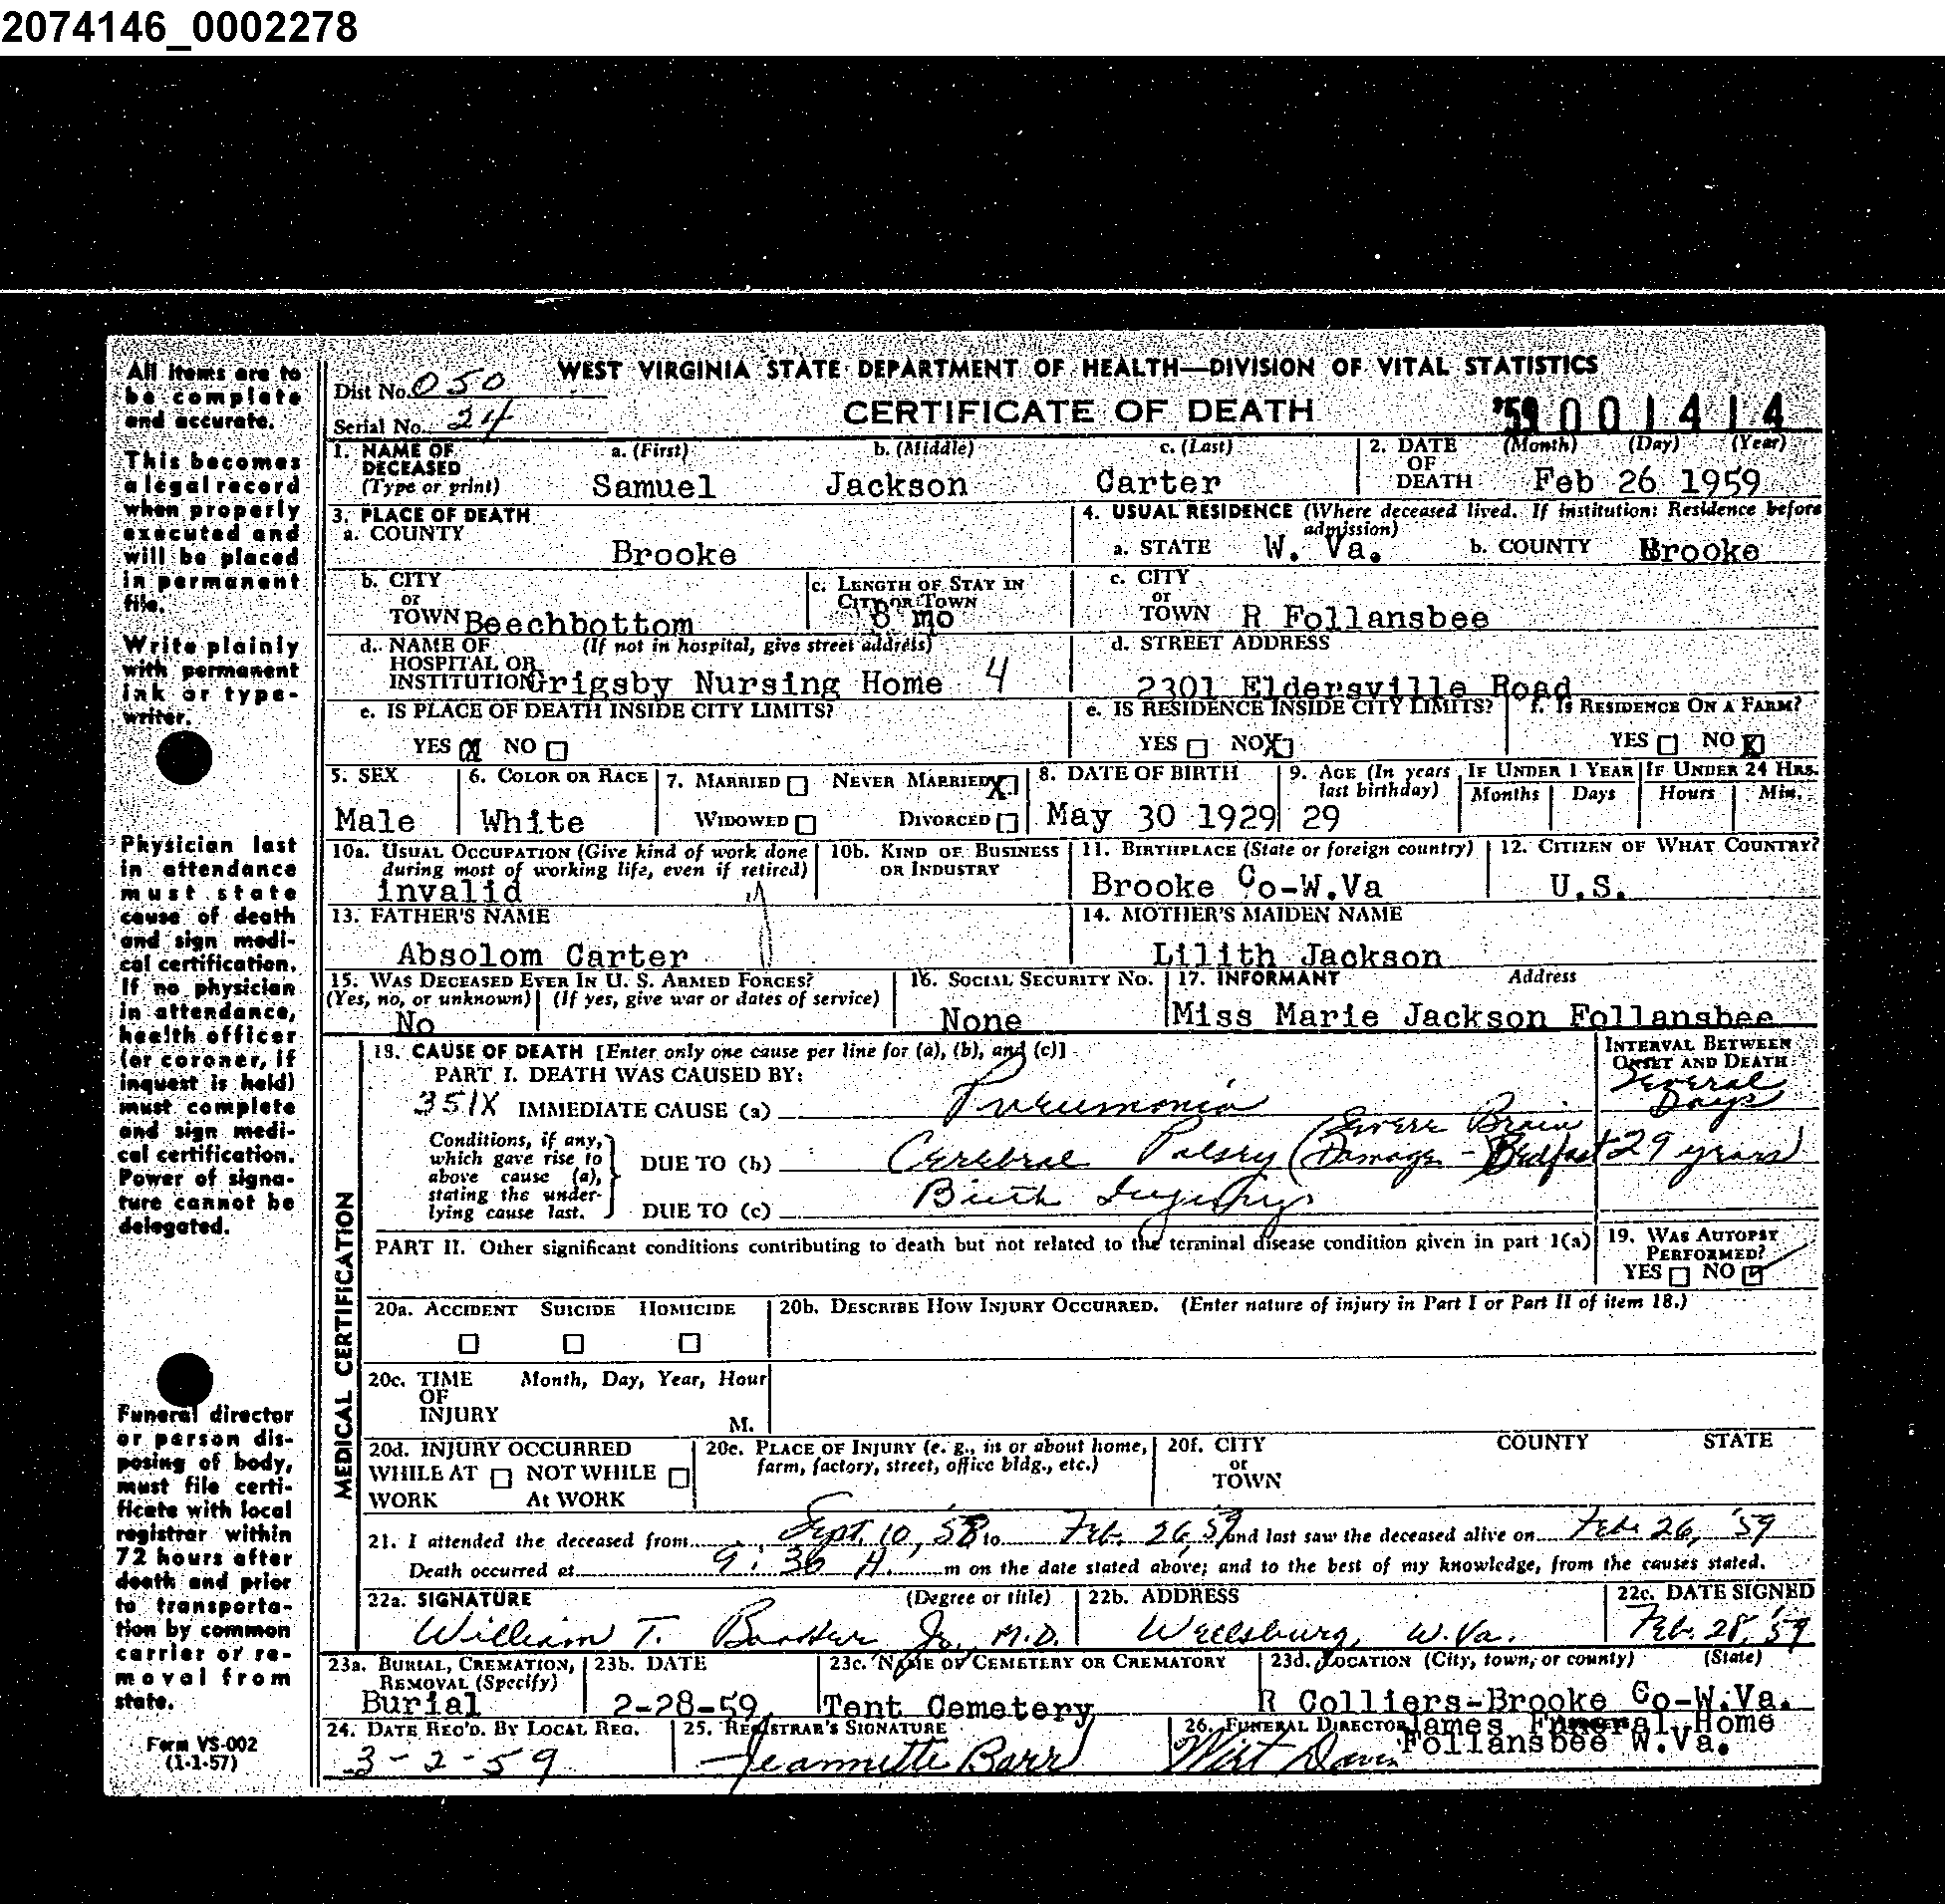 2074146_0002278
All items are to be complete and accurate.
This becomes a legal record when properly executed and will be placed in permanent file.
Write plainly with permanent ink or type-writer.
Physician last in attendance must state cause of death and sign medi-cal certification. If no physician in attendance, health officer (or coroner, if inquest is held) must complete and sign medi-cal certification. Power of signa-ture cannot be delegated.
Funeral director or person dis-posing of body, must file certi-ficate with local registrar within 72 hours after death and prior to transporta-tion by common carrier or re-moval from state.
Form VS-002
(1-1-57)
WEST VIRGINIA STATE DEPARTMENT OF HEALTH—DIVISION OF VITAL STATISTICS
Dist No. 050
Serial No. 24
CERTIFICATE OF DEATH
'59 001414
1. NAME OF DECEASED (Type or print) a. (First) b. (Middle) c. (Last)
Samuel Jackson Carter
2. DATE OF DEATH (Month) (Day) (Year)
Feb 26 1959
3. PLACE OF DEATH
a. COUNTY Brooke
4. USUAL RESIDENCE (Where deceased lived. If institution: Residence before admission)
a. STATE W. Va. b. COUNTY Brooke
b. CITY or TOWN Beechbottom
c. LENGTH OF STAY IN CITY OR TOWN 8 mo
c. CITY or TOWN R Follansbee
d. NAME OF HOSPITAL OR INSTITUTION (If not in hospital, give street address)
Grigsby Nursing Home 4
d. STREET ADDRESS
2301 Eldersville Road
e. IS PLACE OF DEATH INSIDE CITY LIMITS?
YES X NO
e. IS RESIDENCE INSIDE CITY LIMITS?
YES NO X
f. IS RESIDENCE ON A FARM?
YES NO X
5. SEX Male
6. COLOR OR RACE White
7. MARRIED NEVER MARRIED X
WIDOWED DIVORCED
8. DATE OF BIRTH May 30 1929
9. AGE (In years last birthday) 29
IF UNDER 1 YEAR Months Days
IF UNDER 24 HRS. Hours Min.
10a. USUAL OCCUPATION (Give kind of work done during most of working life, even if retired)
invalid
10b. KIND OF BUSINESS OR INDUSTRY
11. BIRTHPLACE (State or foreign country)
Brooke Co-W.Va
12. CITIZEN OF WHAT COUNTRY?
U.S.
13. FATHER'S NAME
Absolom Carter
14. MOTHER'S MAIDEN NAME
Lilith Jackson
15. WAS DECEASED EVER IN U. S. ARMED FORCES?
(Yes, no, or unknown) (If yes, give war or dates of service)
No
16. SOCIAL SECURITY No.
None
17. INFORMANT Address
Miss Marie Jackson Follansbee
MEDICAL CERTIFICATION
18. CAUSE OF DEATH [Enter only one cause per line for (a), (b), and (c)]
PART I. DEATH WAS CAUSED BY:
351X IMMEDIATE CAUSE (a) Pneumonia
INTERVAL BETWEEN ONSET AND DEATH
Several Days
Conditions, if any, which gave rise to above cause (a), stating the under-lying cause last.
DUE TO (b) Cerebral Palsey (Severe Brain Damage - Bedfast 29 years)
DUE TO (c) Birth Injury
PART II. Other significant conditions contributing to death but not related to the terminal disease condition given in part 1(a)
19. WAS AUTOPSY PERFORMED?
YES NO ✓
20a. ACCIDENT SUICIDE HOMICIDE
20b. DESCRIBE HOW INJURY OCCURRED. (Enter nature of injury in Part I or Part II of item 18.)
20c. TIME OF INJURY Month, Day, Year, Hour
M.
20d. INJURY OCCURRED
WHILE AT WORK NOT WHILE At WORK
20e. PLACE OF INJURY (e. g., in or about home, farm, factory, street, office bldg., etc.)
20f. CITY or TOWN COUNTY STATE
21. I attended the deceased from Sept. 10, '58 to Feb. 26, 59 and last saw the deceased alive on Feb. 26, '59
Death occurred at 9:36 A. m on the date stated above; and to the best of my knowledge, from the causes stated.
22a. SIGNATURE (Degree or title)
William T. Booher Jr., M.D.
22b. ADDRESS
Wellsburg, W.Va.
22c. DATE SIGNED
Feb. 28, '59
23a. BURIAL, CREMATION, REMOVAL (Specify)
Burial
23b. DATE
2-28-59
23c. NAME OF CEMETERY OR CREMATORY
Tent Cemetery
23d. LOCATION (City, town, or county) (State)
R Colliers-Brooke Co-W.Va.
24. DATE REC'D. BY LOCAL REG.
3-2-59
25. REGISTRAR'S SIGNATURE
Jeannette Barr
26. FUNERAL DIRECTOR James Funeral Home
Follansbee W.Va.
Wirt Davis